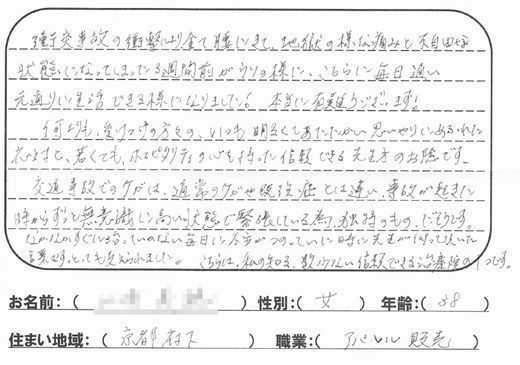 衝突事故の衝撃により全て腫にきて、地獄の様な痛みと不自由な
状態になってしまっている週間前がウソの様に、こちらに毎日通い
元通りに生活できる様になりました！本当に有難うございます！
何よりも、受けつけの方々の、いつも明るくてあたたかい思いやりにあふれた
応対と、若くても、ホスピタリティの心を持った信頼できる先生方のお陰です。
交通事故でのケガは、通常のケガや既往症とは違い、事故が起きた
時からずっと無意識に高い状態で緊張している為、独特のもの、だそうです。
なかなかすぐに治っていかない毎日に不安がつのっていた時に先生が
言葉です。とても支えられました。こちらは、私の知る、数少ない信頼できる治療院の1つです。
お名前：（ ） 性別：（ 女 ） 年齢：（ 38 ）
住まい地域：（ 京都府下 ） 職業：（ アパレル販売 ）